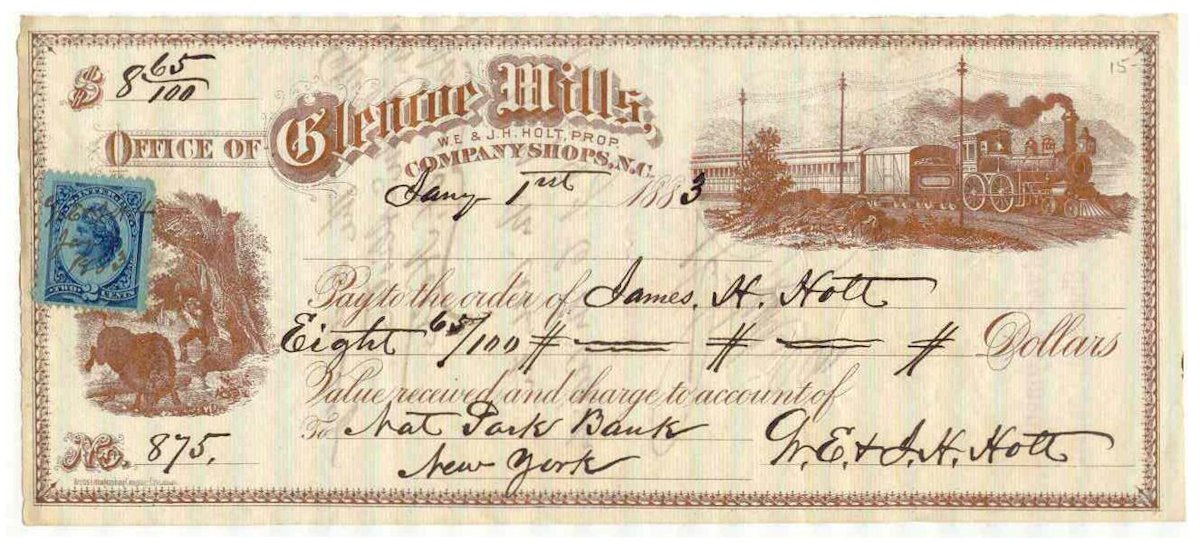 $ 8 65/100
15-
OFFICE OF Glencoe Mills,
W.E. & J.H. HOLT, PROP.
COMPANY SHOPS, N.C.
Jany 1st 1883
Pay to the order of James. H. Holt
Eight 65/100 # — # — # Dollars
Value received and charge to account of
To Nat Park Bank
New York
W. E. & J. H. Holt
No. 875.
TWO 2 CENTS
1883